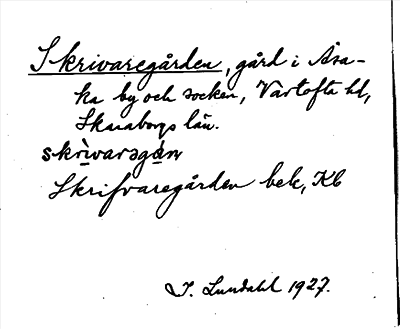 Skrivaregården, gård i Åsa-
ka by och socken, Vartofta hd,
Skaraborgs län.
skrìvaragán
Skrifvaregården bek, Kb
I. Lundahl 1927.